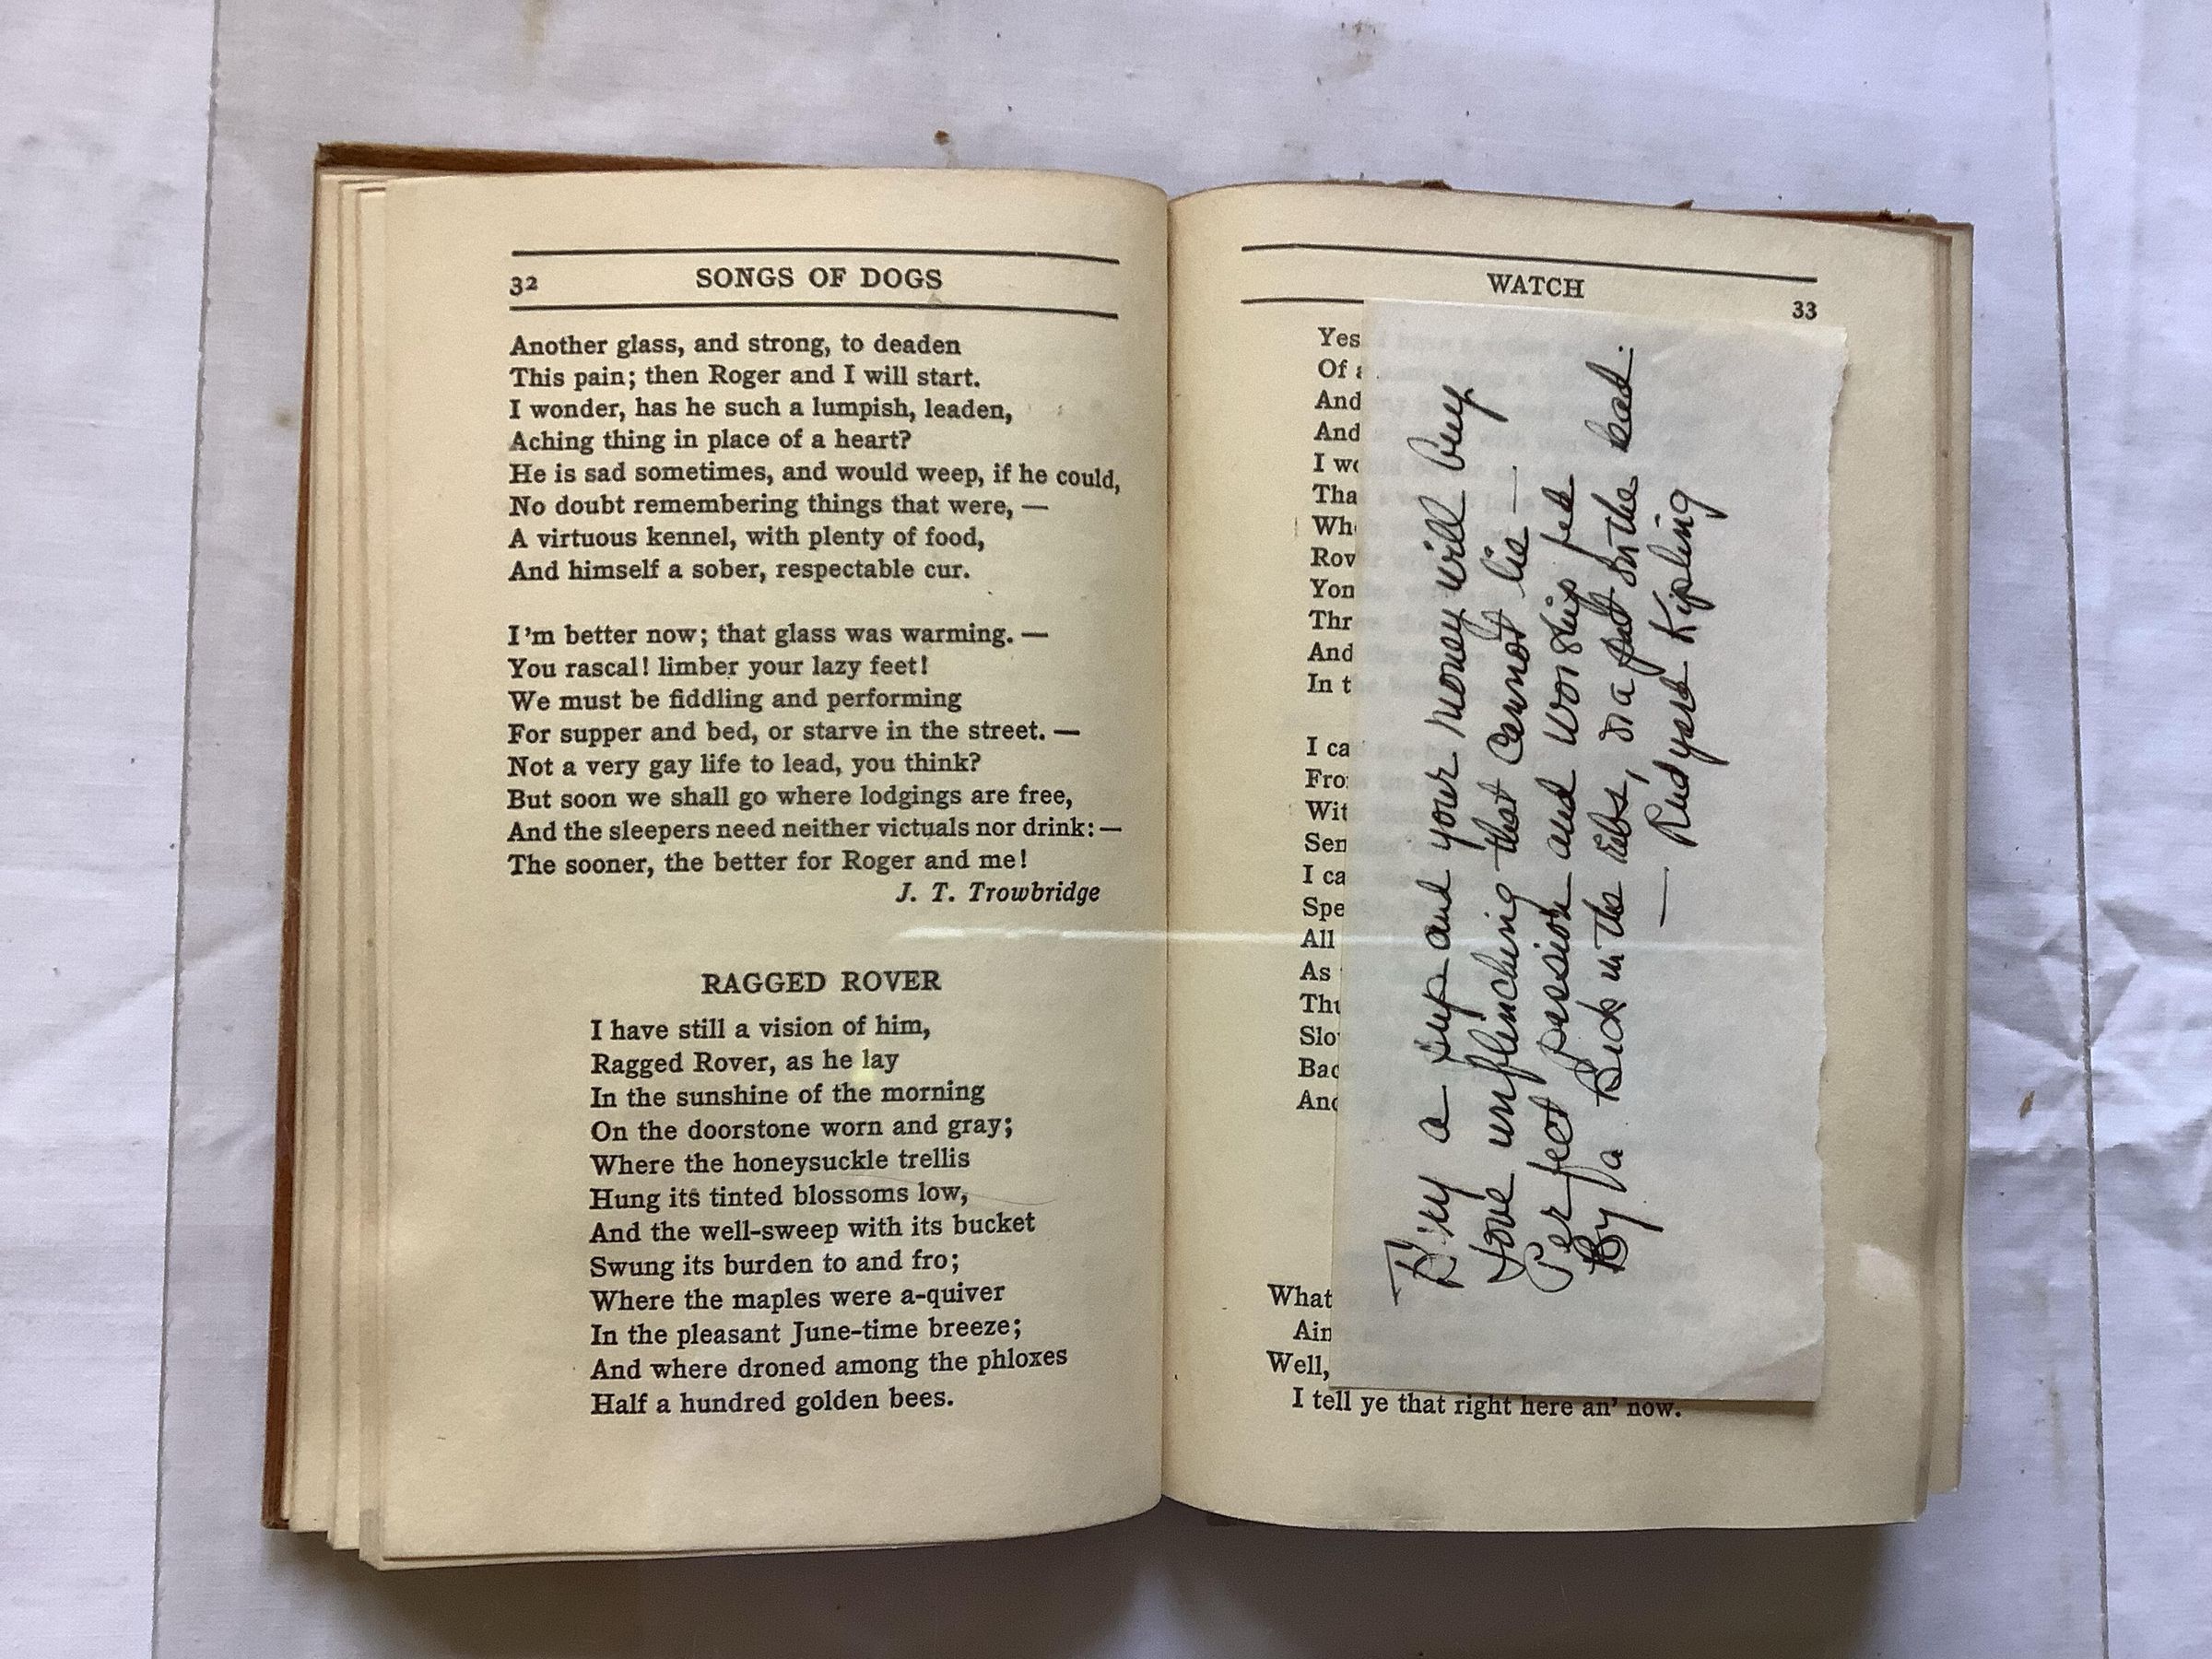 32 SONGS OF DOGS
Another glass, and strong, to deaden
This pain; then Roger and I will start.
I wonder, has he such a lumpish, leaden,
Aching thing in place of a heart?
He is sad sometimes, and would weep, if he could,
No doubt remembering things that were, —
A virtuous kennel, with plenty of food,
And himself a sober, respectable cur.
I'm better now; that glass was warming. —
You rascal! limber your lazy feet!
We must be fiddling and performing
For supper and bed, or starve in the street. —
Not a very gay life to lead, you think?
But soon we shall go where lodgings are free,
And the sleepers need neither victuals nor drink: —
The sooner, the better for Roger and me!
J. T. Trowbridge
RAGGED ROVER
I have still a vision of him,
Ragged Rover, as he lay
In the sunshine of the morning
On the doorstone worn and gray;
Where the honeysuckle trellis
Hung its tinted blossoms low,
And the well-sweep with its bucket
Swung its burden to and fro;
Where the maples were a-quiver
In the pleasant June-time breeze;
And where droned among the phloxes
Half a hundred golden bees.
WATCH 33
Yes
Of
And
And
I
Tha
Wh
Rov
Yon
Thr
And
In t
I ca
Fro
Wit
Sen
I ca
Spe
All
As
Thu
Slo
Bac
And
What
Ain
Well,
I tell ye that right here an' now.
Buy a pup and your money will buy
Love unflinching that cannot lie —
Perfect passion and worship fed
By a kick in the ribs, or a pat on the head.
— Rudyard Kipling